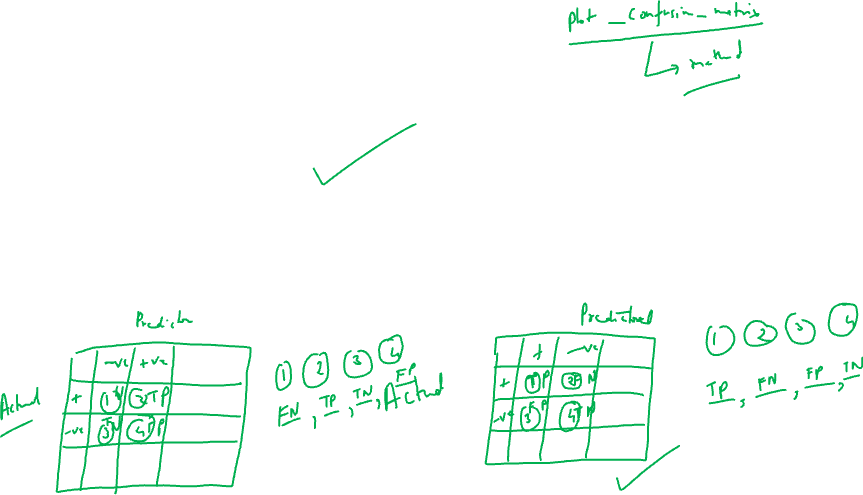 plot _confusion_matrix
method
Predicton
-ve +ve
Actual
+ 1 2 TP
-ve 3 4 P
1 2 3 4
FN, TP, TN, FP
Actual
Predicted
+ -ve
+ 1 P 2 N
-ve 3 P 4
1 2 3 4
TP, FN, FP, TN